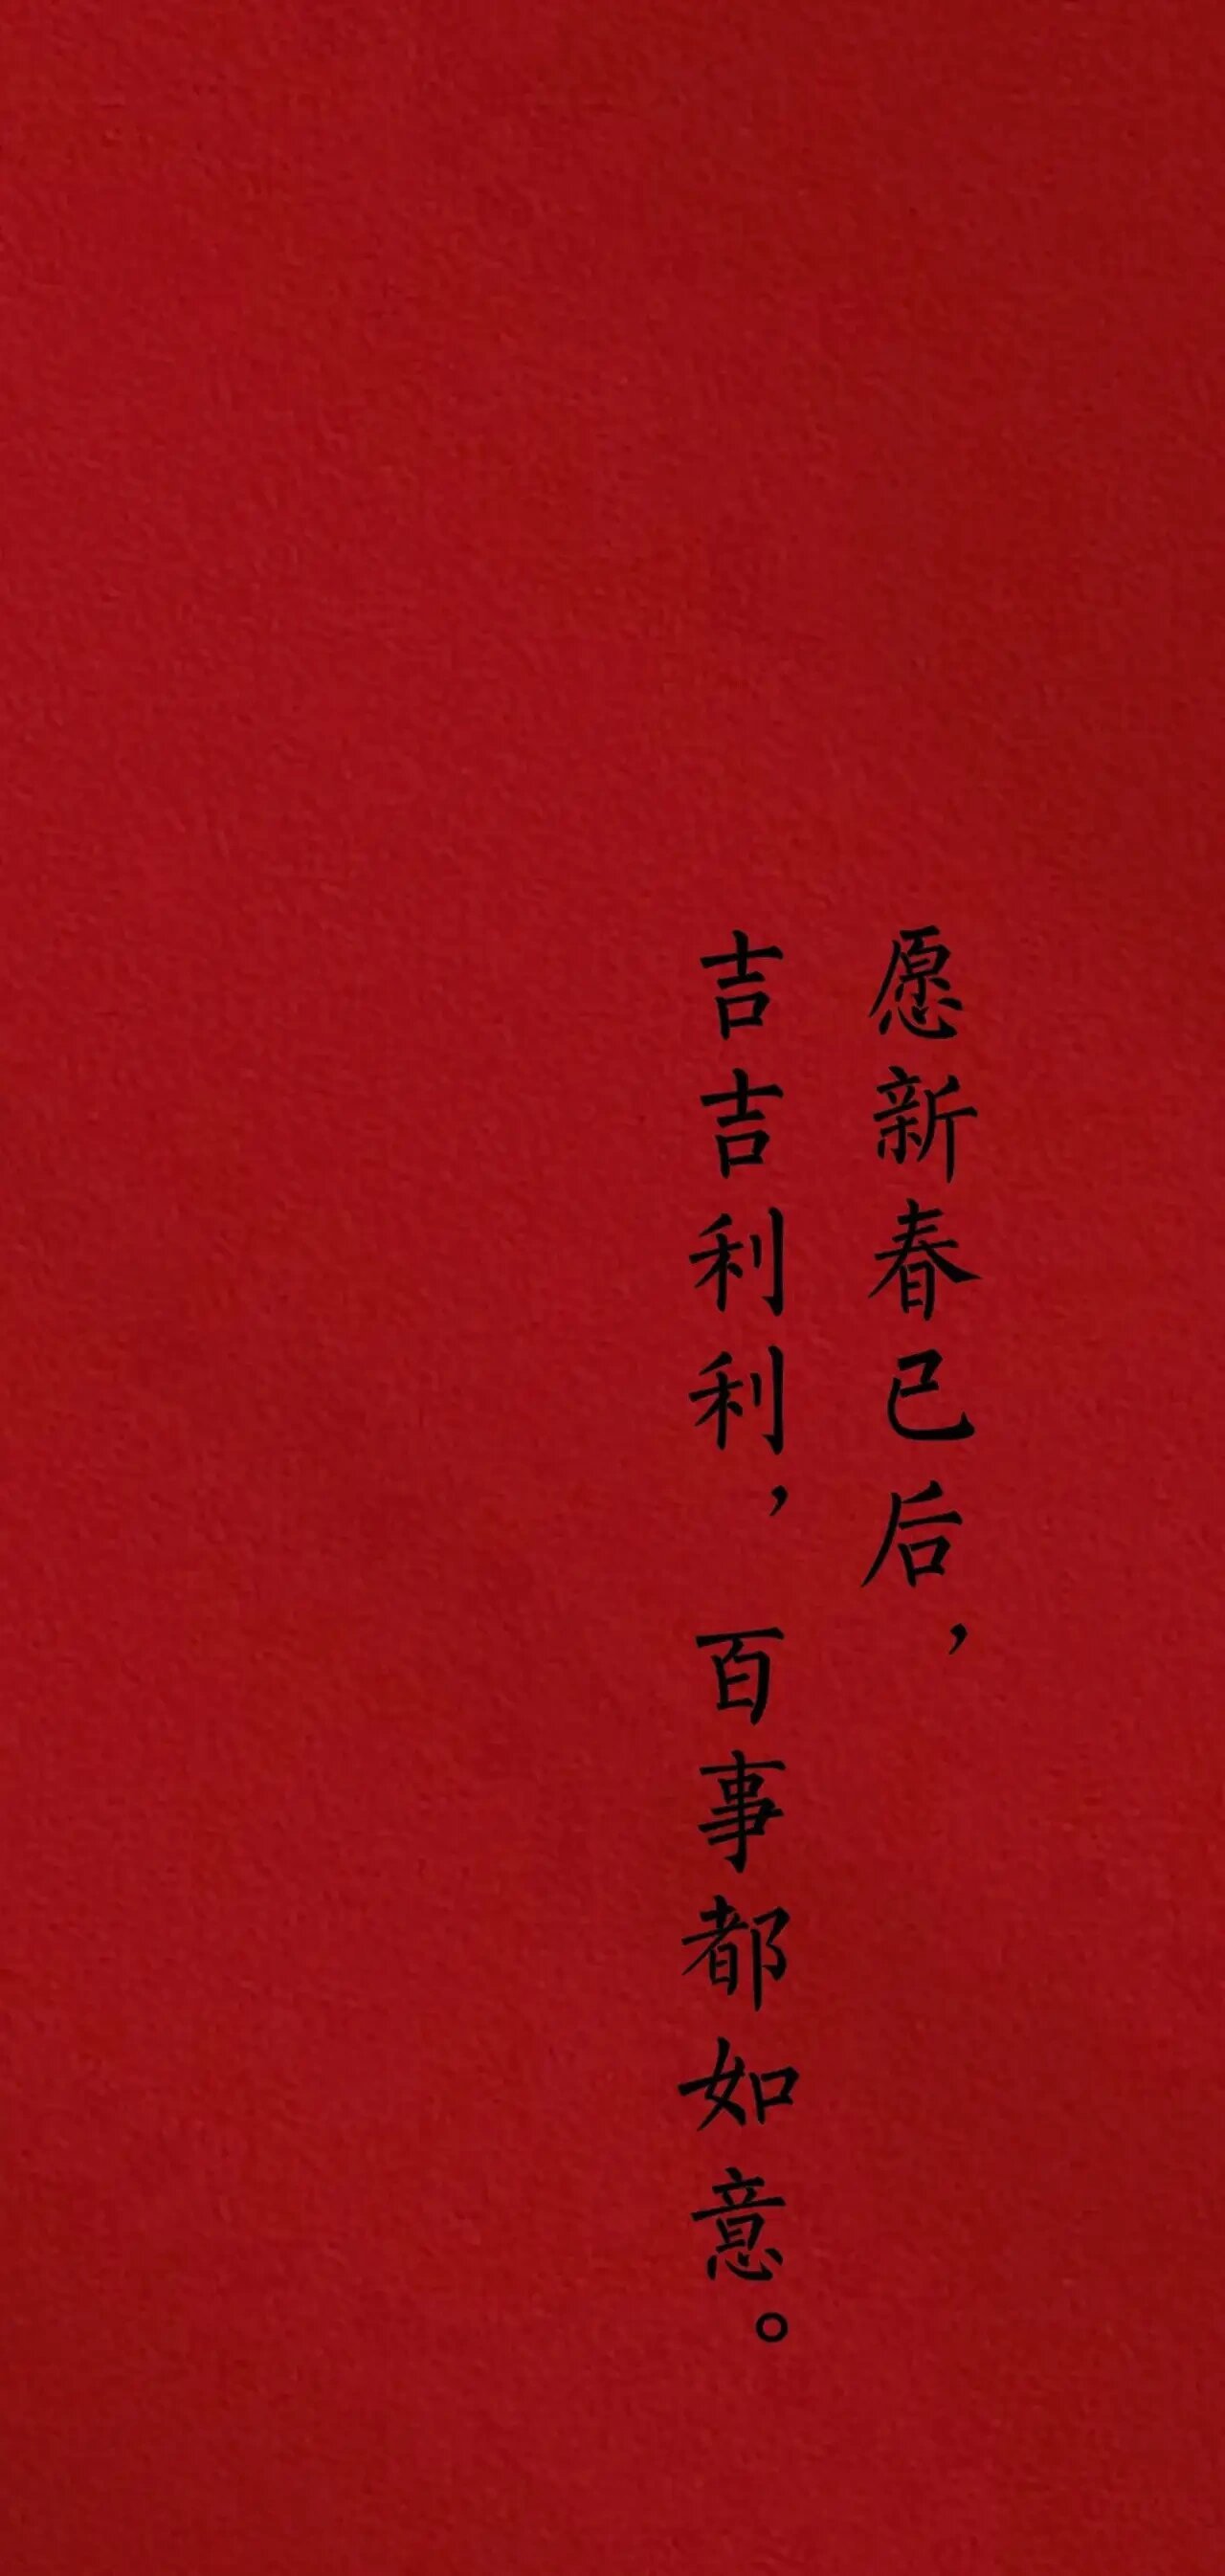 愿新春已后，
吉吉利利，百事都如意。